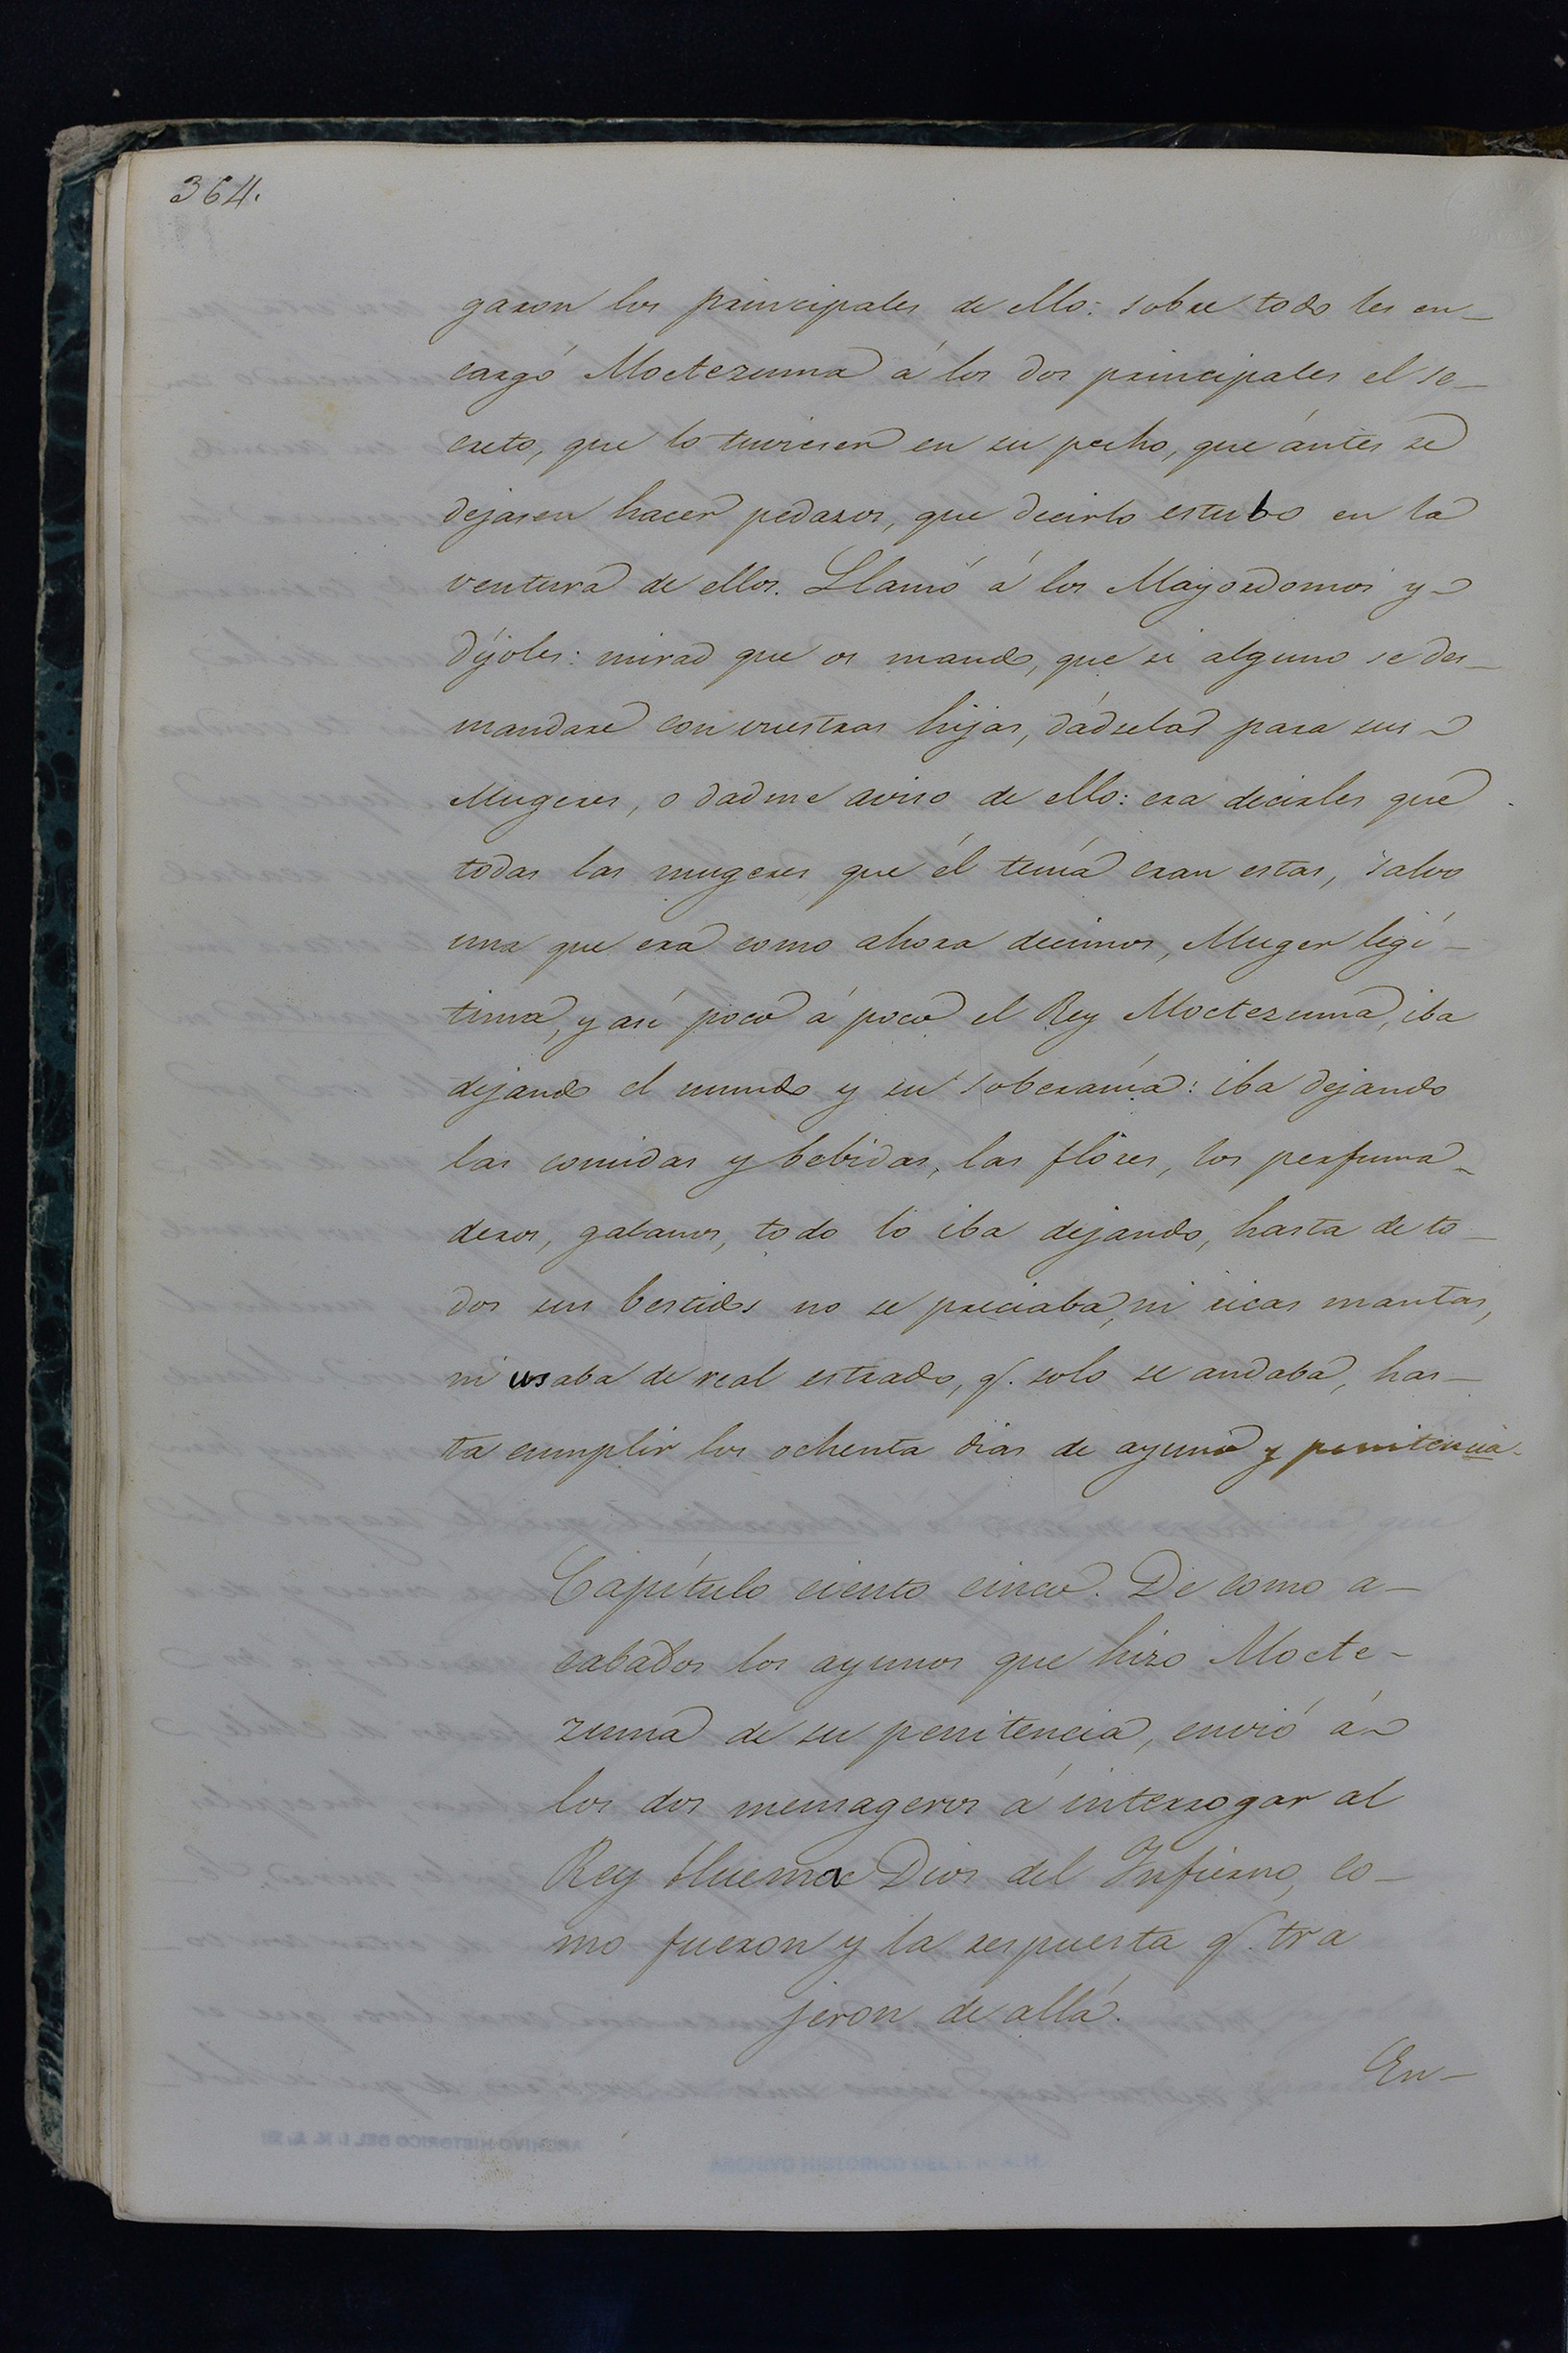 364.
garon los principales de ello: sobre todo les en-
cargó Moctezuma á los dos principales el se-
creto, que lo tuviesen en su pecho, que ántes se
dejasen hacer pedazos, que decirlo estubo en la
ventura de ellos. Llamó á los Mayordomos y
díjoles: mirad que os mando, que si alguno se des-
mandare con vuestras hijas, dádselas para sus
Mugeres, o dadme aviso de ello: era decirles que
todas las mugeres que él tenía eran estas, salvo
una que era como ahora decimos, Muger legí-
tima, y así poco á poco el Rey Moctezuma, iba
dejando el mundo y su soberanía: iba dejando
las comidas y bebidas, las flores, los perfuma-
deros, galanos, todo lo iba dejando, hasta de to-
dos sus bestidos no se preciaba, ni ricas mantas,
ni usaba de real estrado, q. solo se andaba, has-
ta cumplir los ochenta dias de ayuno y penitencia.
Capítulo ciento cinco. De como a-
cabados los ayunos que hizo Mocte-
zuma de su penitencia, envió á
los dos mensageros á interrogar al
Rey Huemac Dios del Infierno, co-
mo fueron y la respuesta q. tra
jeron de allá.
En-
ARCHIVO HISTORICO DEL I. N. A. H.